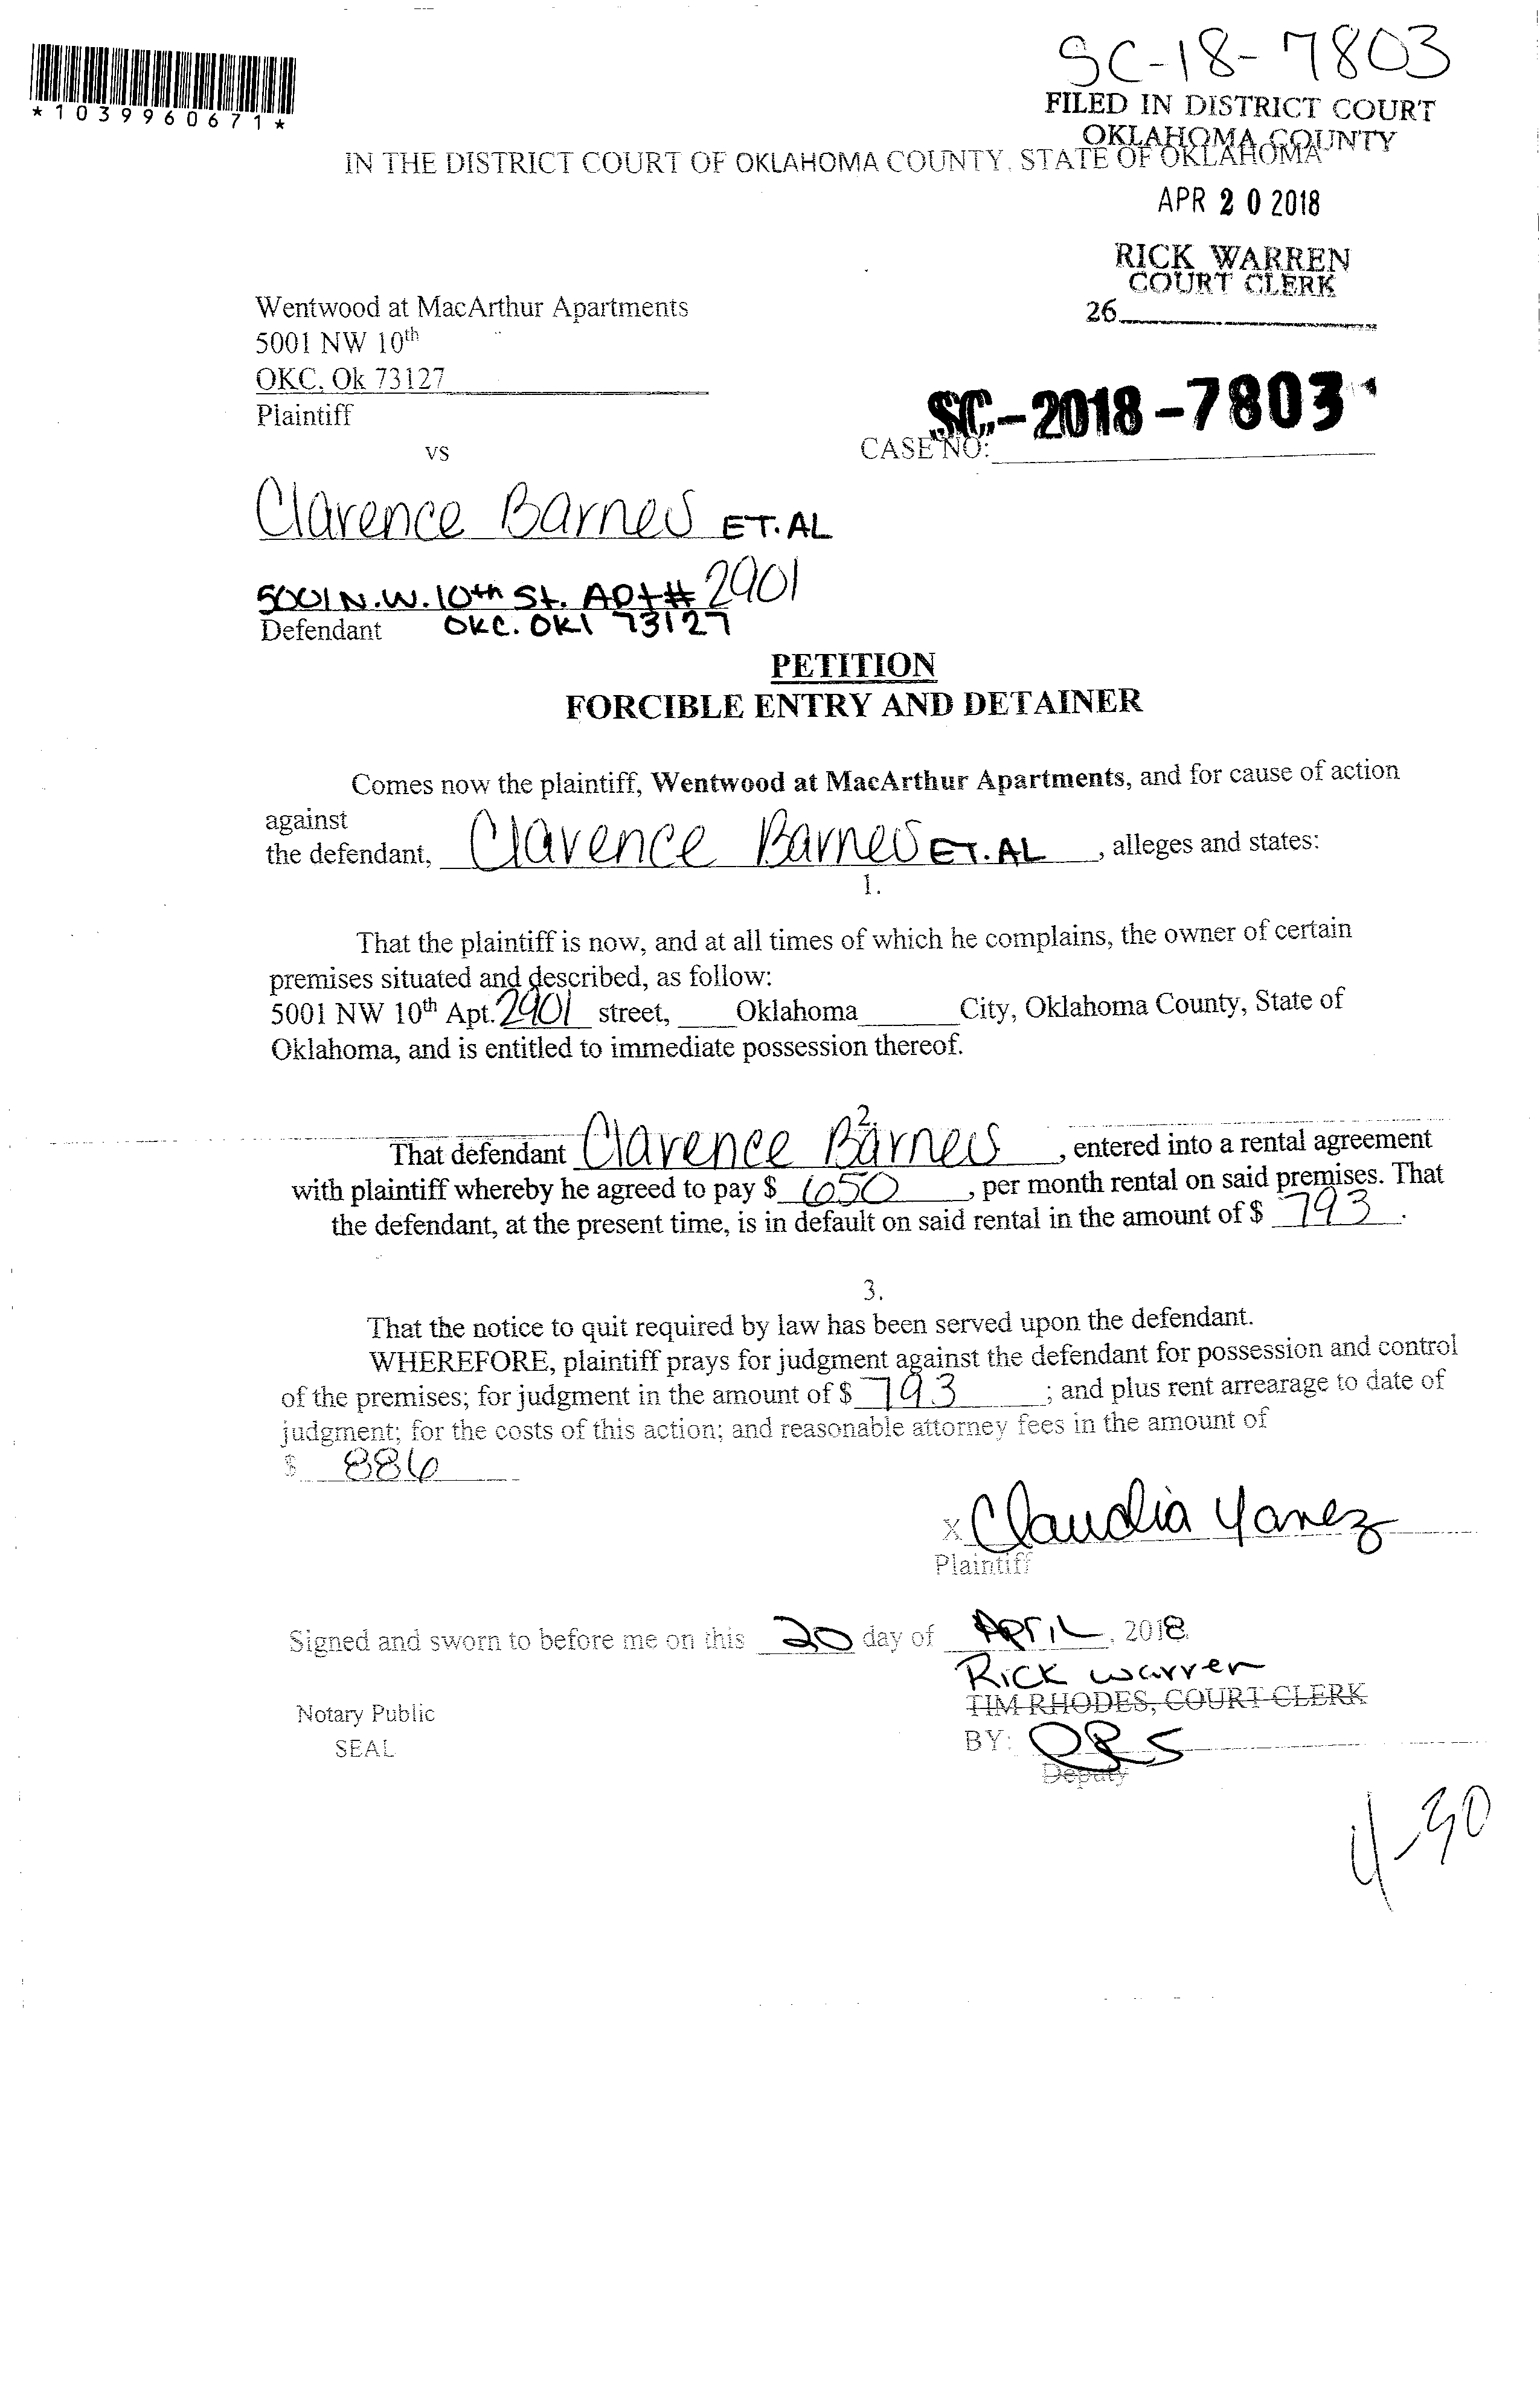 SC-18-7803
*1039960671*
FILED IN DISTRICT COURT
OKLAHOMA COUNTY
IN THE DISTRICT COURT OF OKLAHOMA COUNTY, STATE OF OKLAHOMA
APR 20 2018
RICK WARREN
COURT CLERK
26
Wentwood at MacArthur Apartments
5001 NW 10th
OKC, Ok 73127
Plaintiff
SC-2018-7803
vs
CASE NO:
Clarence Barnes ET.AL
5001 N.W. 10th St. Apt# 2901
Defendant OKC. OKl 73127
PETITION
FORCIBLE ENTRY AND DETAINER
Comes now the plaintiff, Wentwood at MacArthur Apartments, and for cause of action
against
the defendant, Clarence Barnes ET.AL, alleges and states:
1.
That the plaintiff is now, and at all times of which he complains, the owner of certain
premises situated and described, as follow:
5001 NW 10th Apt. 2901 street, Oklahoma City, Oklahoma County, State of
Oklahoma, and is entitled to immediate possession thereof.
2
That defendant Clarence Barnes, entered into a rental agreement
with plaintiff whereby he agreed to pay $ 650, per month rental on said premises. That
the defendant, at the present time, is in default on said rental in the amount of $ 793.
3.
That the notice to quit required by law has been served upon the defendant.
WHEREFORE, plaintiff prays for judgment against the defendant for possession and control
of the premises; for judgment in the amount of $ 793; and plus rent arrearage to date of
judgment; for the costs of this action; and reasonable attorney fees in the amount of
$ 886
x Claudia Yanez
Plaintiff
Signed and sworn to before me on this 20 day of APRIL, 2018.
Rick Warren
TIM RHODES, COURT CLERK
Notary Public
SEAL
BY: QRS
Deputy
4-30